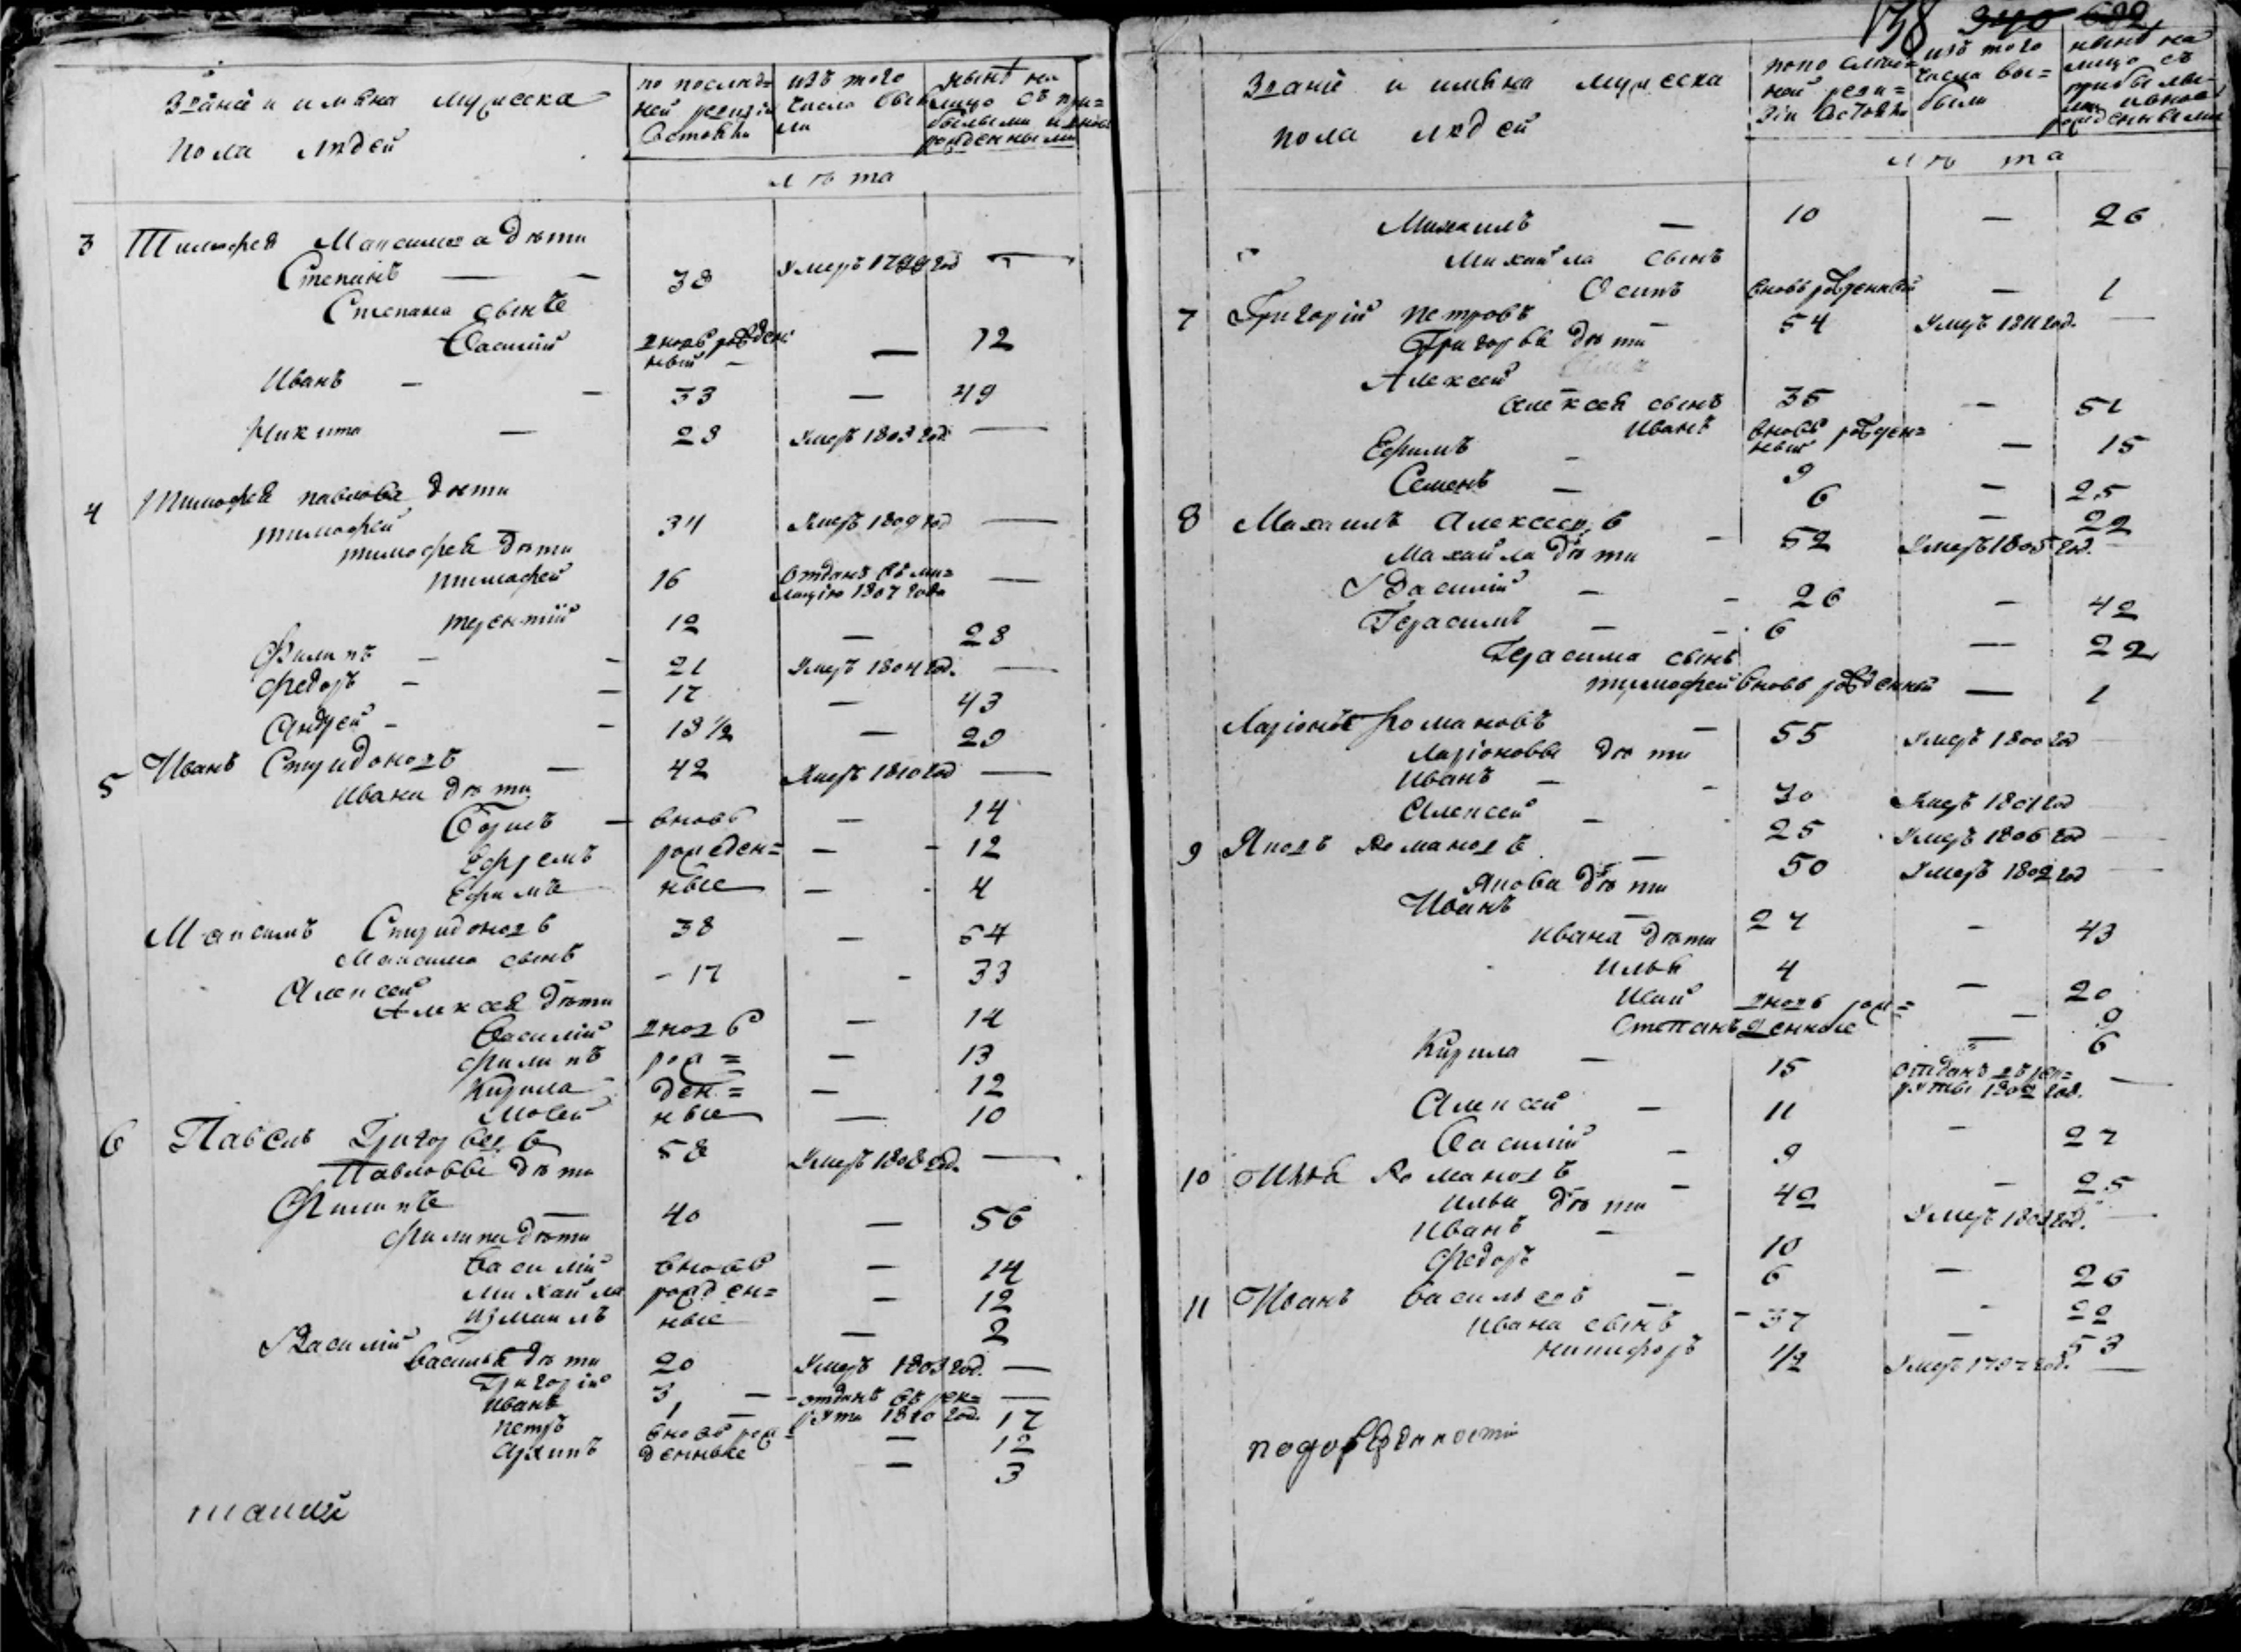 Званіе и имѣна мужеска
пола людей
по послѣд=
ней ревизіи
состояли
изъ того
числа выбы
ли
нынѣ на
лицо съ при=
былыми и вновь
рожденными
лѣта
3 Тимофея Максимова дѣти
Степанъ — — 38 Умеръ 1799 год —
Степана сынъ
Василій вновь рожден
ный — — 12
Иванъ — — 33 — 49
Никита — 28 Умеръ 1803 год —
4 Тимофея павлова дѣти
тимофей 34 Умеръ 1809 год —
тимофея дѣти
тимофей 16 Отданъ въ ми=
лицію 1807 года —
терентій 12 — 28
Филипъ — — 21 Умеръ 1804 год. —
Федоръ — — 17 — 43
Андрей — — 13 1/2 — 29
5 Иванъ Спиридоновъ — 42 Умеръ 1810 год —
Ивана дѣти
Борисъ — вновь — 14
Ефремъ рожден= — - 12
Ефимъ ные — - 4
Максимъ Спиридоновъ 38 — 54
Максима сынъ
Алексей - 17 - 33
Алексея дѣти
Василій вновь — 14
филипъ рож= — 13
Кирила ден= — 12
Мосей ные — 10
6 Павелъ Григорьевъ 58 Умеръ 1808 год. —
Павловы дѣти
Филипъ — 40 — 56
филипа дѣти
василій вновь — 14
михайла рожден= — 12
Измаилъ ные — 2
Василій 20 Умеръ 1803 год. —
Василья дѣти
Григорій 3 — - отданъ въ рек=
руты 1810 год. —
Иванъ 1 — 17
петръ вновь рож= — 12
архипъ денные — 3
138 340 692
Званіе и имѣна мужеска
пола людей
по послѣд=
ней реви=
зіи состояли
изъ того
числа вы=
были
нынѣ на
лицо съ
прибылы-
ми и вновь
рожденными
лѣта
Михаилъ — 10 — 26
Михайла сынъ
Осипъ вновь рожденный — 1
7 Григорій петровъ — 54 Умеръ 1811 год. —
Григорья дѣти
Алексей 35 — 51
алексея сынъ
Иванъ вновь рожден=
ный — 15
Ефимъ — 9 — 25
Семенъ — 6 — 22
8 Михаилъ Алексеевъ — 52 Умеръ 1805 год. —
Михайла дѣти
Василій — — 26 — 42
Герасимъ — — 6 — 22
Герасима сынъ
тимофей вновь рожденный — 1
Ларіонъ Романовъ — 55 Умеръ 1800 год —
Ларіоновы дѣти
Иванъ — - 30 Умеръ 1801 год —
Алексей — 25 Умеръ 1806 год —
9 Яковъ Романовъ — 50 Умеръ 1802 год —
Якова дѣти
Иванъ — 27 — 43
Ивана дѣти
Илья 4 — 20
Исай вновь рож= — 9
Степанъ денные — 6
Кирила — 15 отданъ въ рек=
руты 1802 год. —
Алексей — 11 — 27
Василій — 9 — 25
10 Илья Романовъ — 42 Умеръ 1803 год. —
Ильи дѣти
Иванъ — 10 — 26
Федоръ — 6 — 22
11 Иванъ васильевъ — - 37 — 53
Ивана сынъ
никифоръ 1/2 Умеръ 1797 год. —